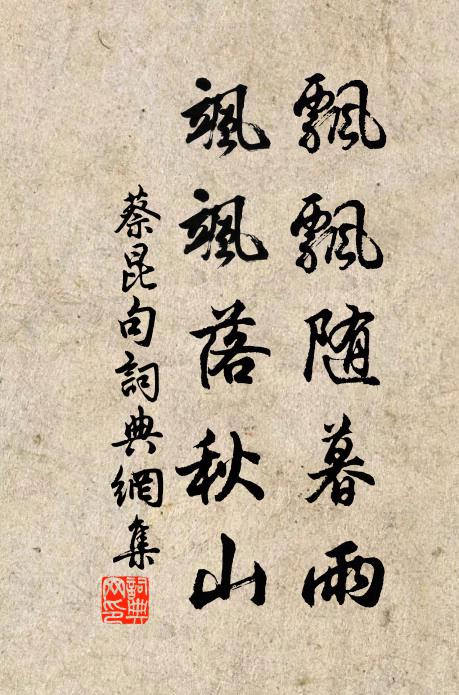 飄飄随暮雨
颯颯落秋山
蔡昆句詞典網集
詞典
网印